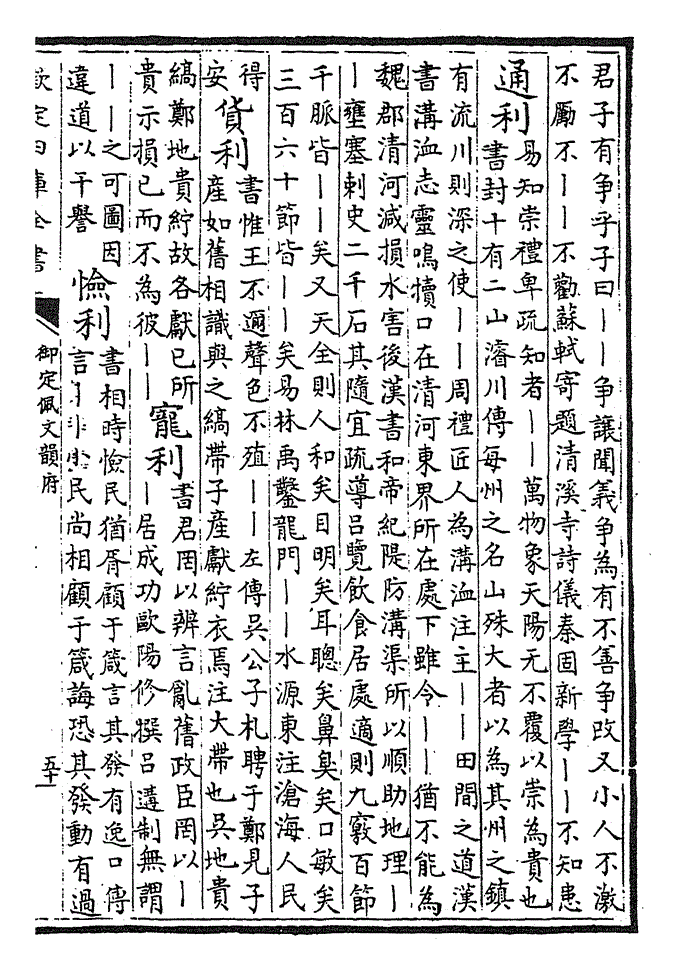 君子有争乎子曰――争讓聞義争為有不善争改又小人不激
不勵不――不勸蘇軾寄題清溪寺詩儀秦固新學――不知患
通利
易知崇禮卑疏知者――萬物象天陽无不覆以崇為貴也
書封十有二山濬川傳每州之名山殊大者以為其州之鎮
有流川則深之使――周禮匠人為溝洫注主――田間之道漢
書溝洫志靈鳴犢口在清河東界所在處下雖令――猶不能為
魏郡清河減損水害後漢書和帝紀隄防溝渠所以順助地理―
―壅塞刺史二千石其隨宜疏導吕覽飲食居處適則九竅百節
千脈皆――矣又天全則人和矣目明矣耳聰矣鼻臭矣口敏矣
三百六十節皆――矣易林禹鑿龍門――水源東注滄海人民
得
安
貨利
書惟王不邇聲色不殖――左傳吴公子札聘于鄭見子
産如舊相識與之縞帶子産獻紵衣焉注大帶也吴地貴
縞鄭地貴紵故各獻已所
貴示損已而不為彼――
寵利
書君罔以辨言亂舊政臣罔以―
―居成功歐陽修撰吕溱制無謂
――之可圖因
違道以干譽
憸利
書相時憸民猶胥顧于箴言其發有逸口傳
言 民尚相顧于箴誨恐其發動有過
欽定四庫全書
御定佩文韻府
五十